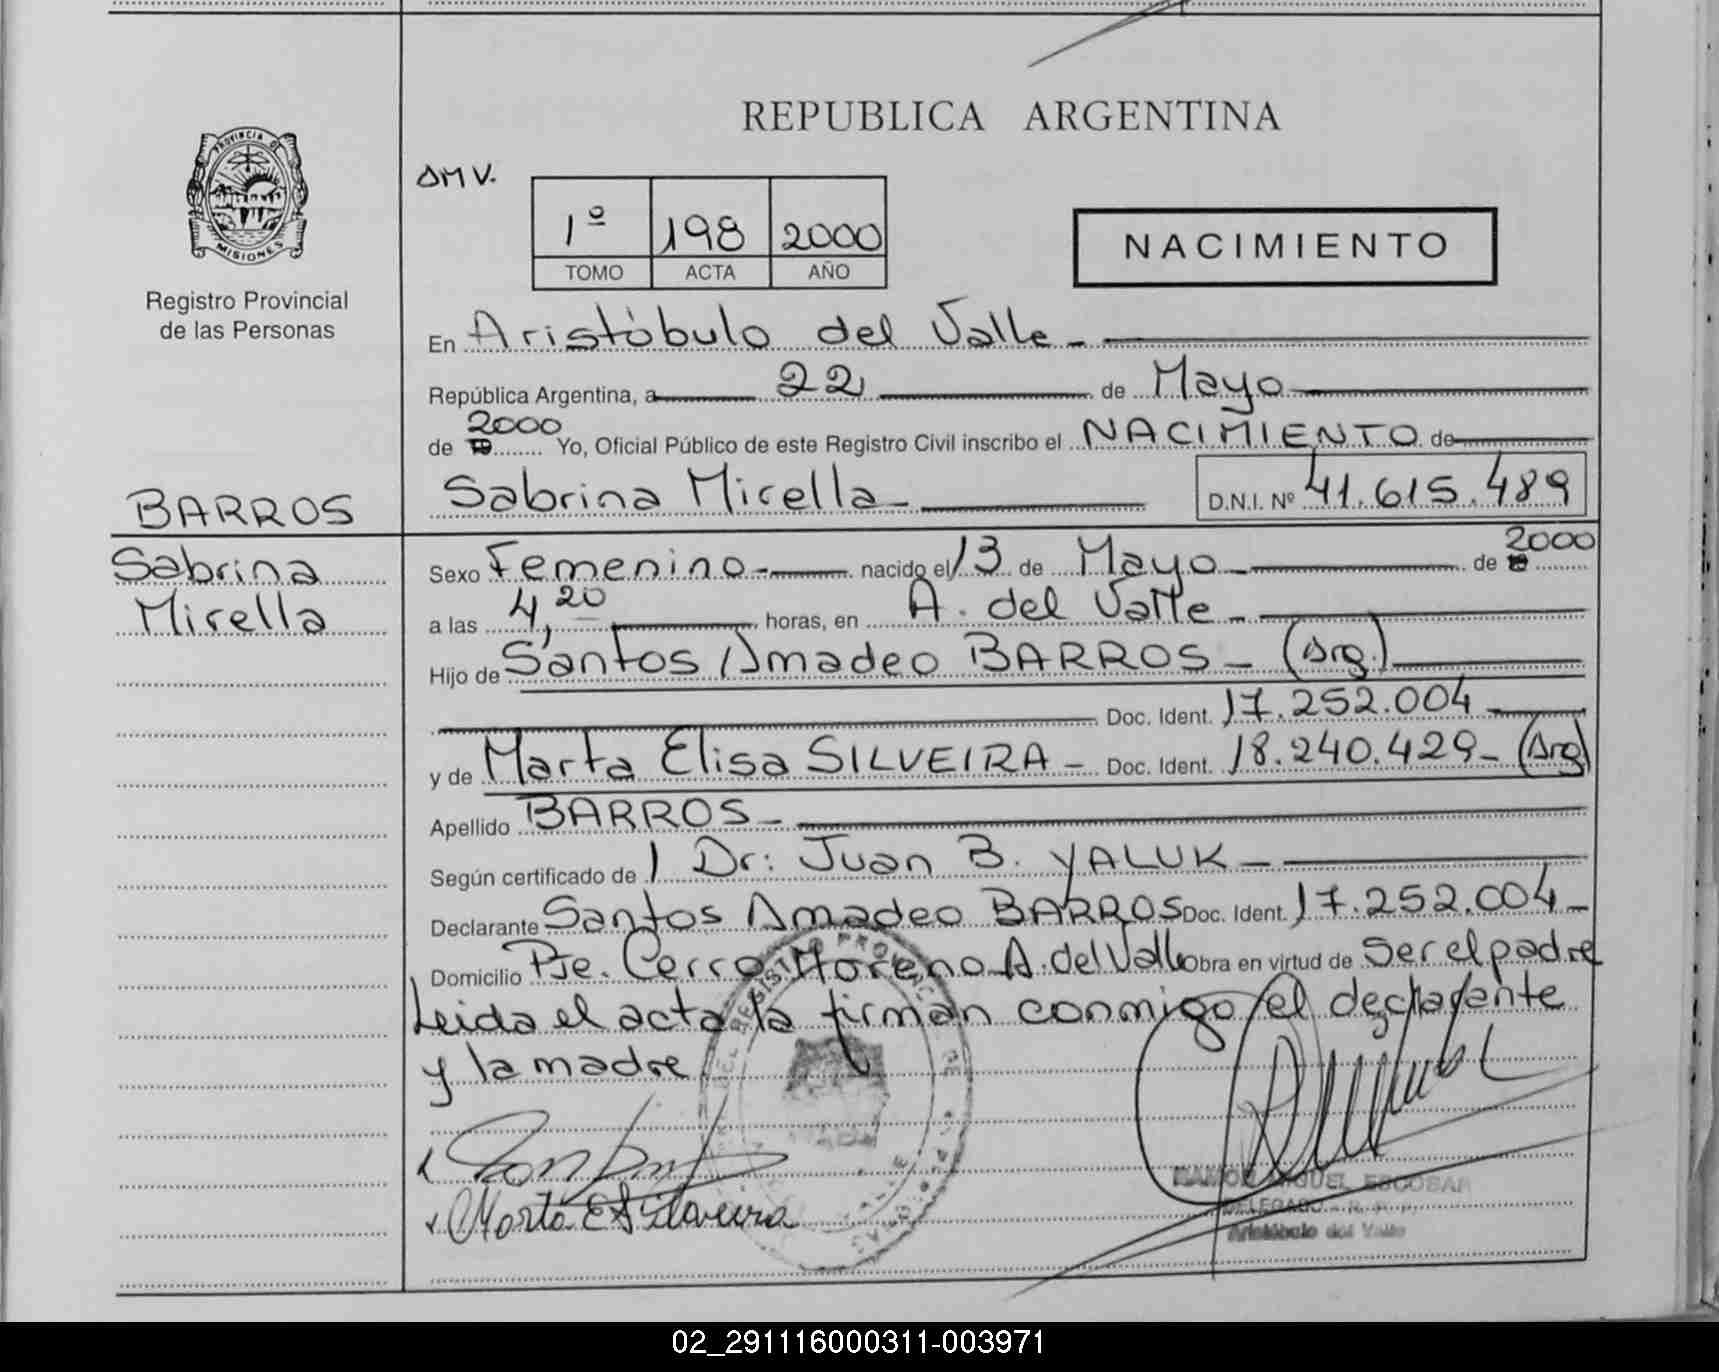 REPUBLICA ARGENTINA
PROVINCIA DE
MISIONES
Registro Provincial
de las Personas
DMV.
1º 198 2000
TOMO ACTA AÑO
NACIMIENTO
En Aristóbulo del Valle -
República Argentina, a 22 de Mayo
de 2000 Yo, Oficial Público de este Registro Civil inscribo el NACIMIENTO de
BARROS
Sabrina Mirella - D.N.I. Nº 41.615.489
Sabrina
Mirella
Sexo Femenino - nacido el 13 de Mayo - de 2000
a las 4,20 horas, en A. del Valle -
Hijo de Santos Amadeo BARROS - (Arg.)
Doc. Ident. 17.252.004
y de Marta Elisa SILVEIRA - Doc. Ident. 18.240.429 - (Arg)
Apellido BARROS -
Según certificado de / Dr: Juan B. YALUK -
Declarante Santos Amadeo BARROS Doc. Ident. 17.252.004 -
Domicilio Pje. Cerro Moreno A. del Valle obra en virtud de ser el padre
Leida el acta la firman conmigo el declarante
y la madre
Marta E Silveira
RAMON MIGUEL ESCOBAR
DELEGADO
Aristóbulo del Valle
02_291116000311-003971